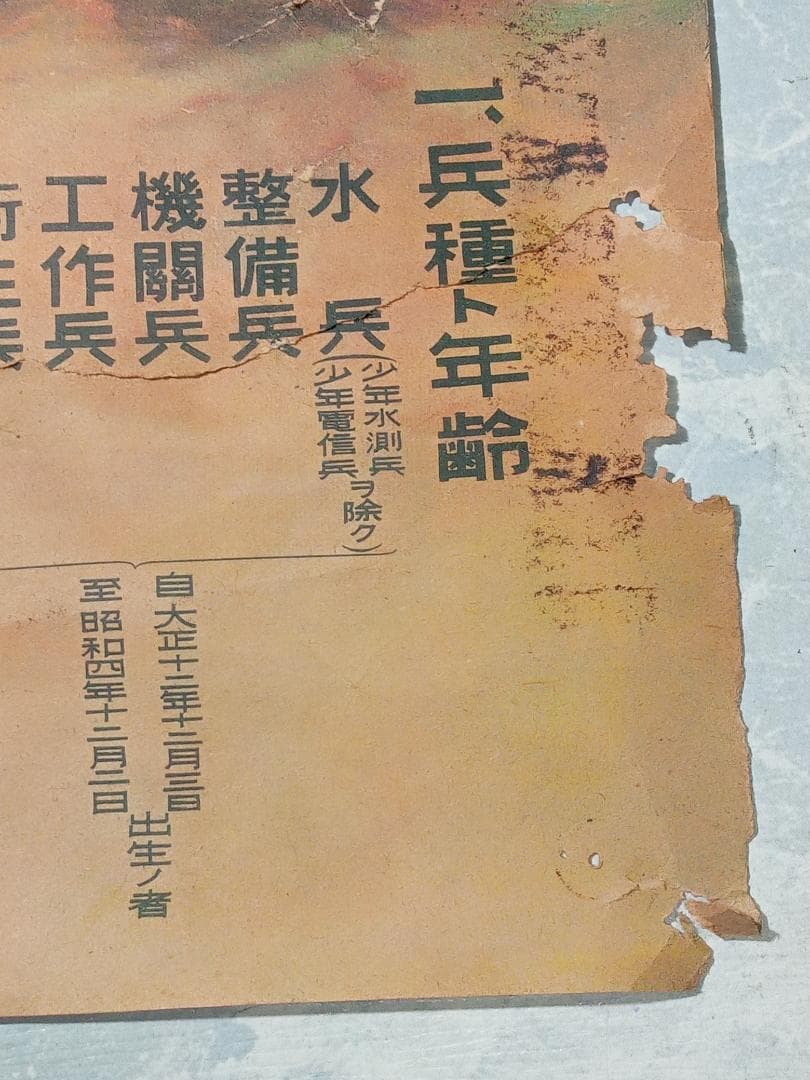 一、兵種ト年齢
水兵(少年水測兵
少年電信兵ヲ除ク)
整備兵
機關兵
工作兵
衛生兵
自大正十二年十二月三日
至昭和四年十二月二日
出生ノ者